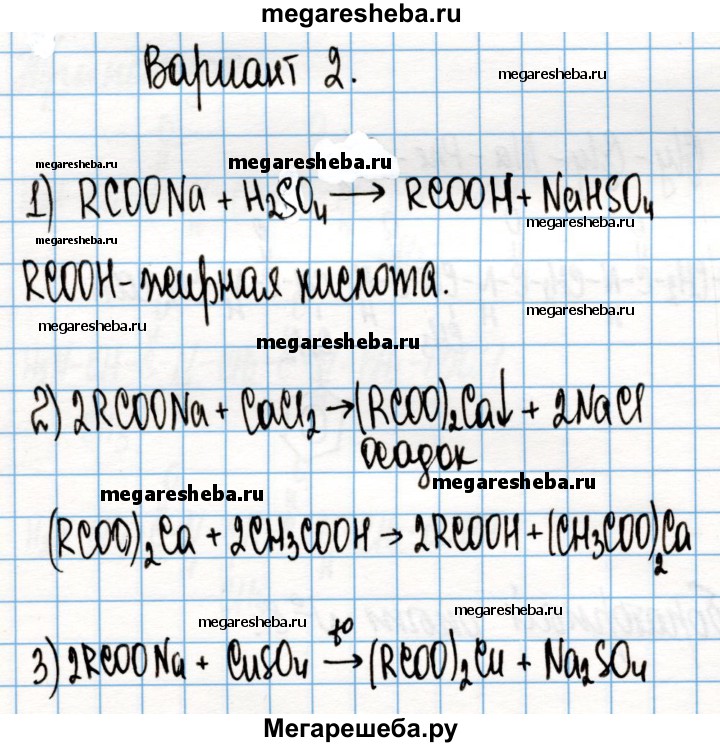 megaresheba.ru
Вариант 2.
megaresheba.ru
megaresheba.ru
megaresheba.ru
1) RCOONa + H₂SO₄ → RCOOH + NaHSO₄
megaresheba.ru
RCOOH - жирная кислота.
megaresheba.ru
megaresheba.ru
megaresheba.ru
2) 2RCOONa + CaCl₂ → (RCOO)₂Ca↓ + 2NaCl
осадок
megaresheba.ru
megaresheba.ru
(RCOO)₂Ca + 2CH₃COOH → 2RCOOH + (CH₃COO)₂Ca
megaresheba.ru
megaresheba.ru
3) 2RCOONa + CuSO₄ →t° (RCOO)₂Cu + Na₂SO₄
Мегарешеба.ру